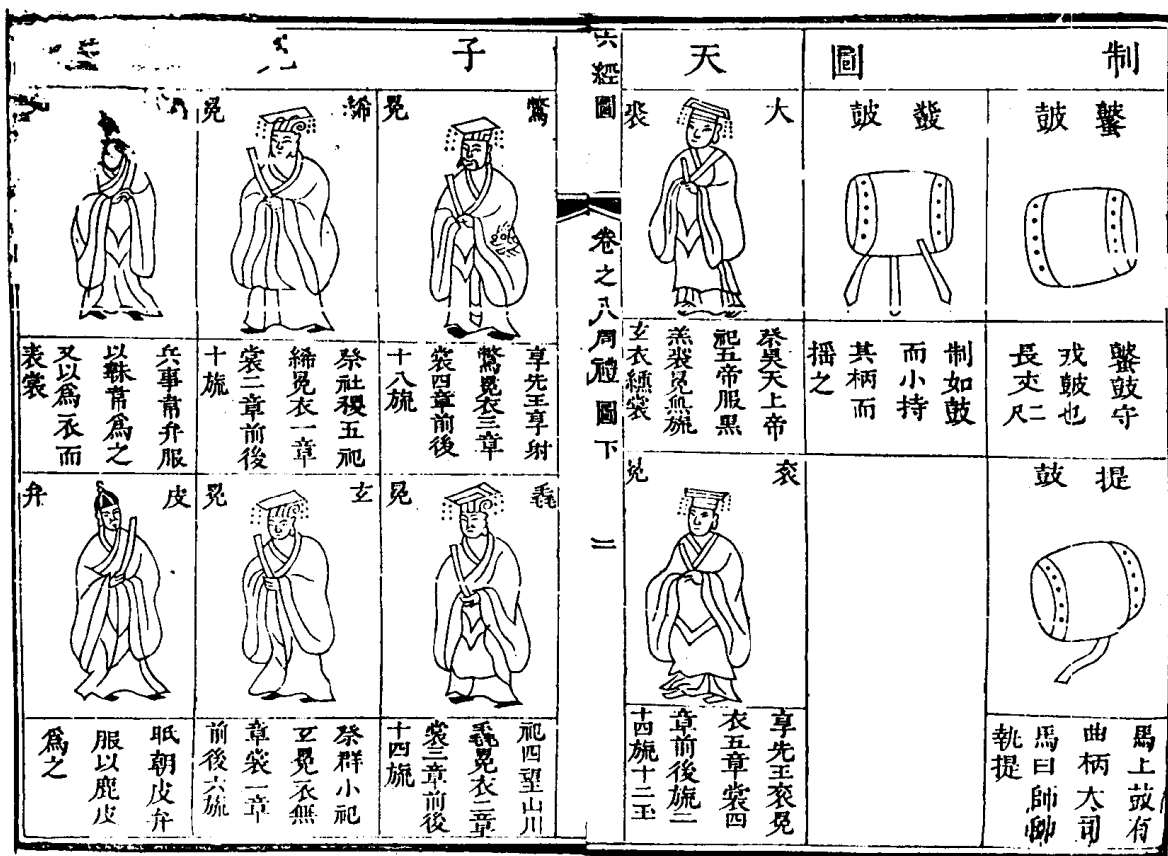 制圖
鼜鼓
鼜鼓守
戎鼓也
長丈二尺
提鼓
馬上鼓有
曲柄大司
馬曰師帥
執提
鼗鼓
制如鼓
而小持
其柄而
搖之
天子冕
大裘
祭昊天上帝
祀五帝服黑
羔裘冕無旒
玄衣纁裳
袞冕
享先王袞冕
衣五章裳四
章前後旒二
十四旒十二玉
六經圖 卷之八 周禮圖下 二
鷩冕
享先王享射
鷩冕衣三章
裳四章前後
十八旒
毳冕
祀四望山川
毳冕衣二章
裳三章前後
十四旒
絺冕
祭社稷五祀
絺冕衣一章
裳二章前後
十旒
玄冕
祭群小祀
玄冕衣無
章裳一章
前後六旒
兵事韋弁服
以韎韋爲之
又以爲衣而
裳
皮弁
眂朝皮弁
服以鹿皮
爲之